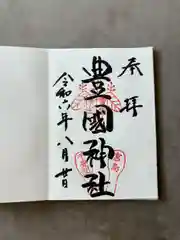 奉拝
豊國神社
令和六年八月廿日